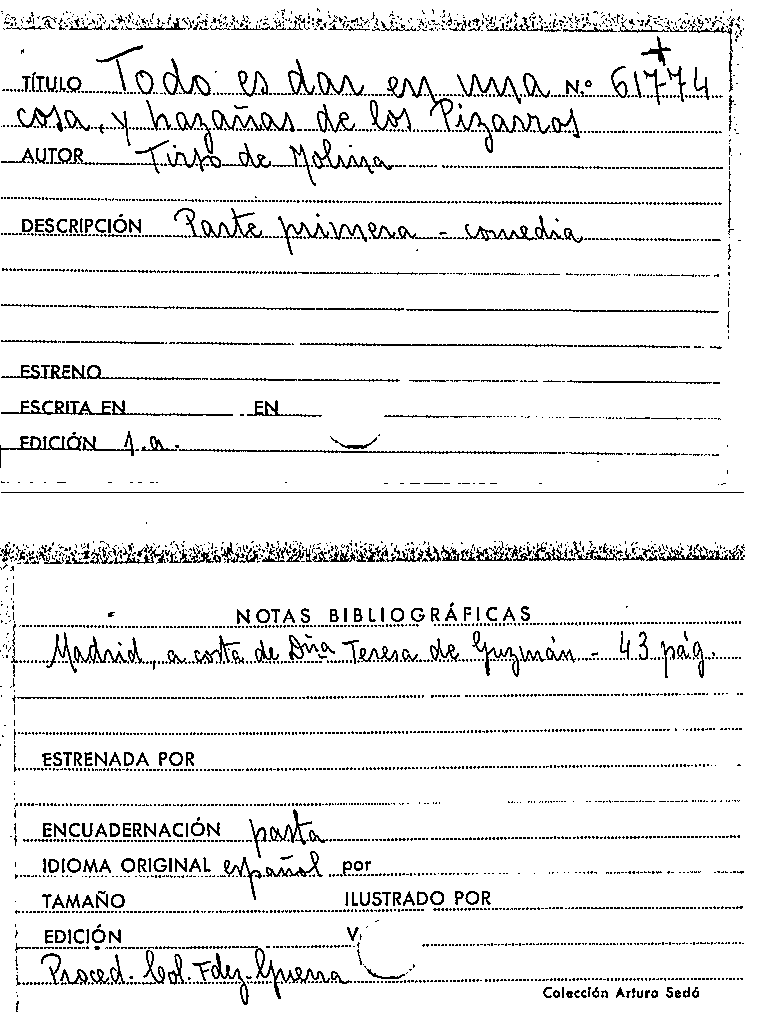 TÍTULO Todo es dar en una N.º 61774
cosa, y hazañas de los Pizarros
AUTOR Tirso de Molina
DESCRIPCIÓN Parte primera - comedia
ESTRENO
ESCRITA EN EN
EDICIÓN 1.a.
NOTAS BIBLIOGRÁFICAS
Madrid, a costa de Dña Teresa de Guzmán - 43 pág.
ESTRENADA POR
ENCUADERNACIÓN pasta
IDIOMA ORIGINAL español por
TAMAÑO ILUSTRADO POR
EDICIÓN V
Proced. Col. Fdez-Guerra
Colección Arturo Sedó